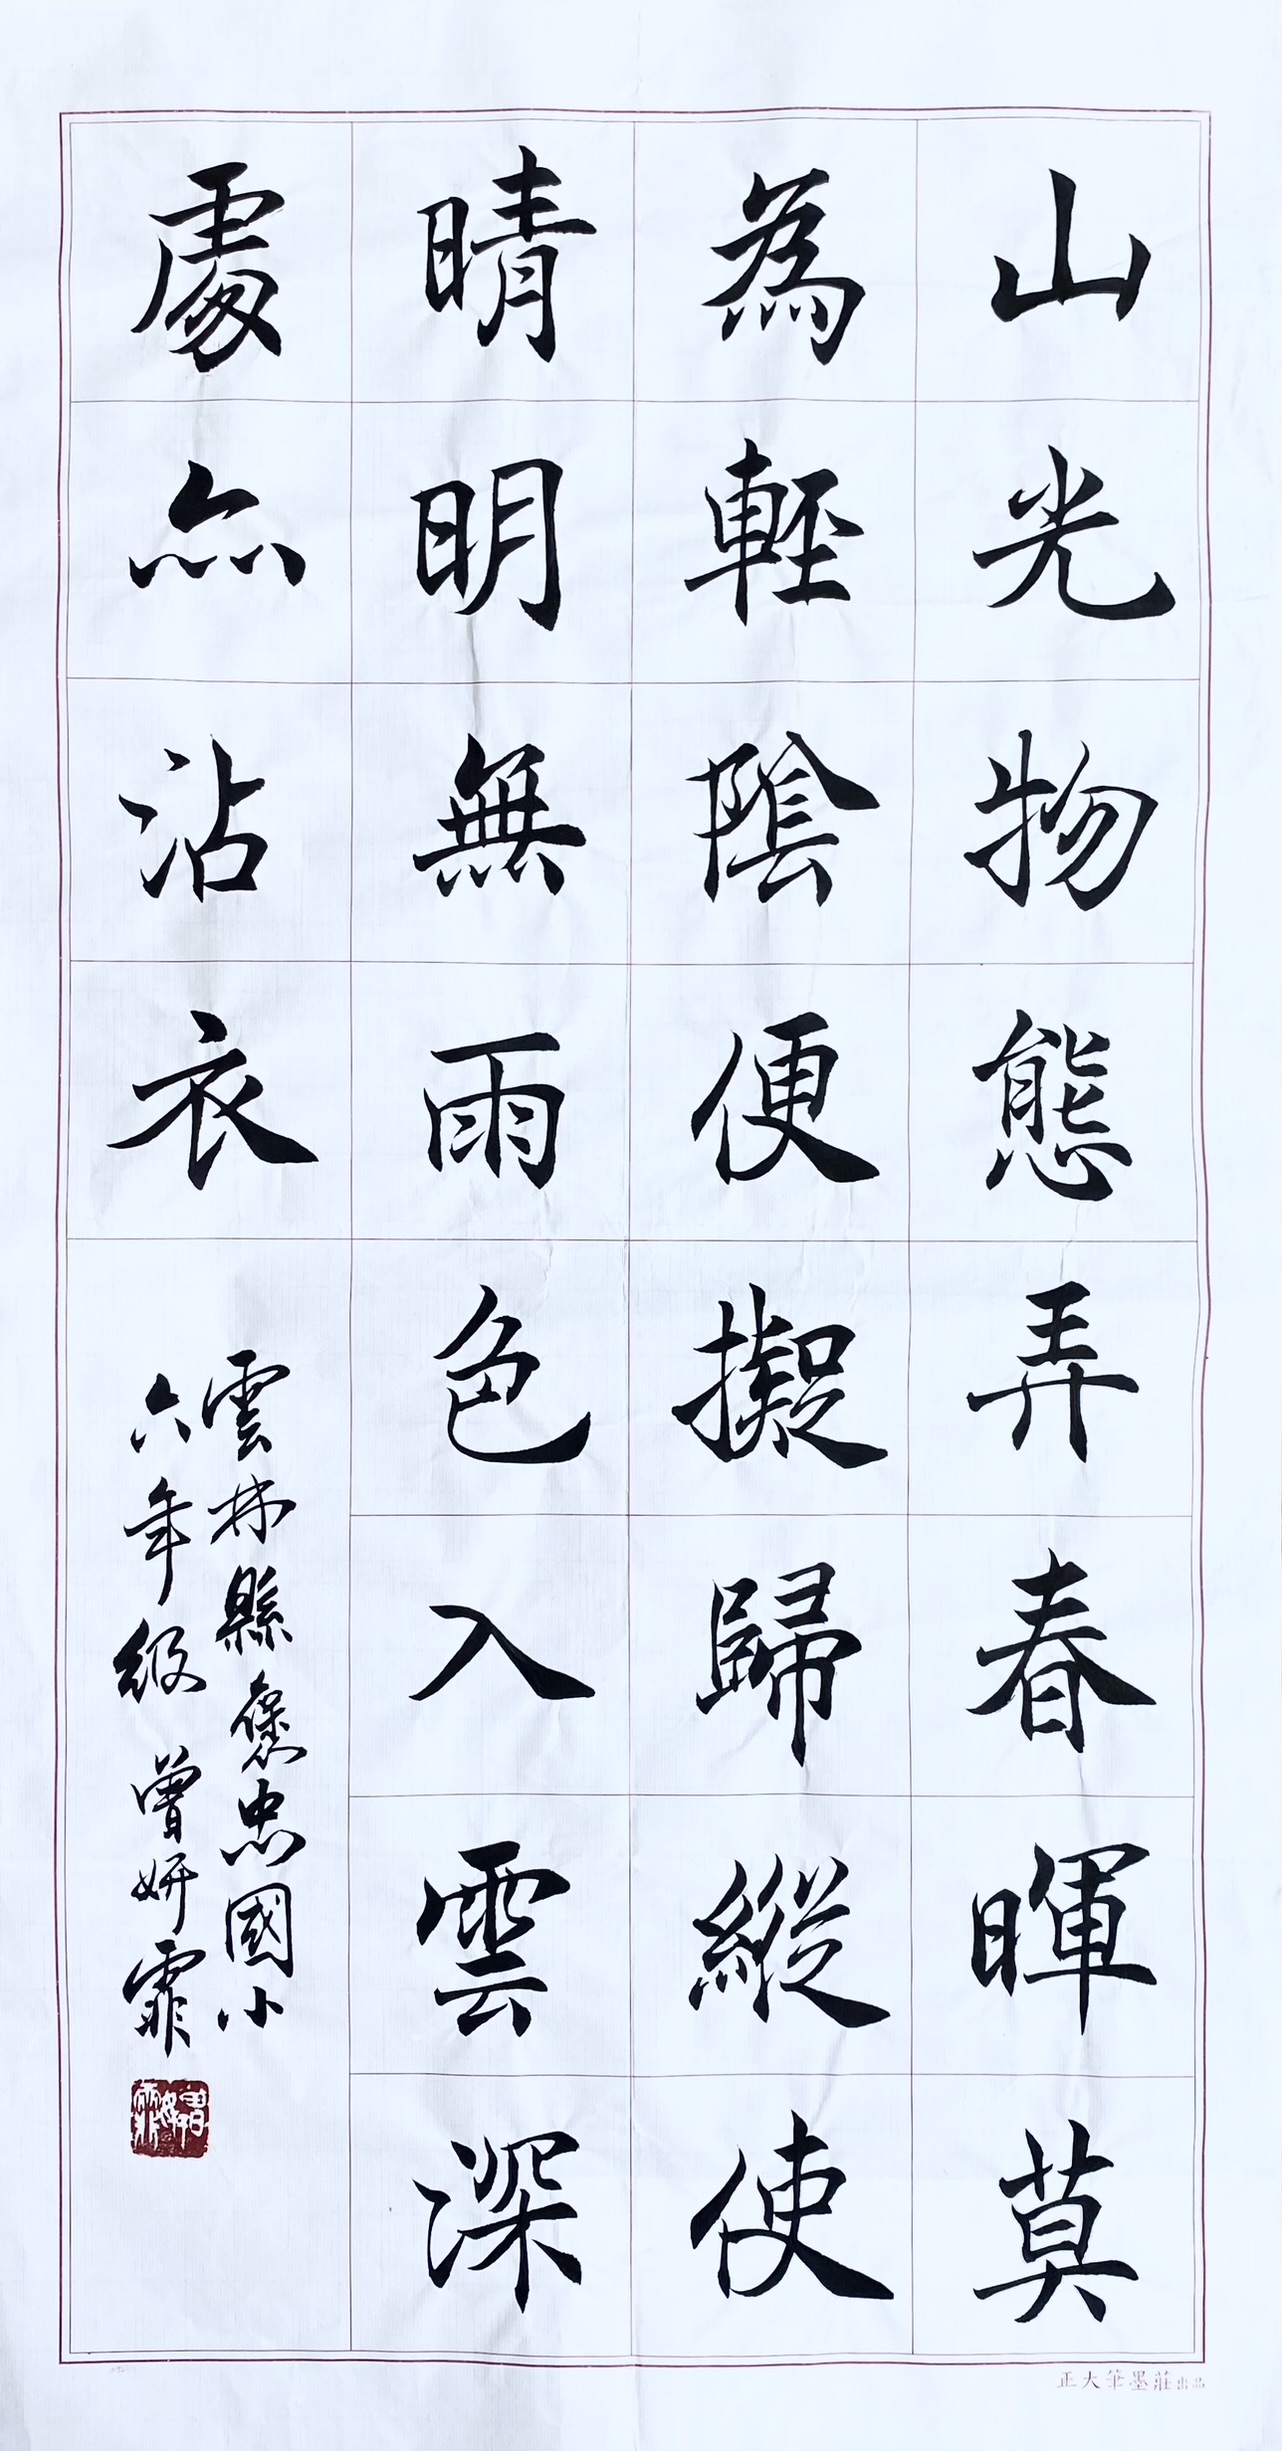 山光物態弄春暉莫
為輕陰便擬歸縱使
晴明無雨色入雲深
處亦沾衣
雲林縣褒忠國小
六年級 曾妍霏
曾妍霏
正大筆墨莊出品